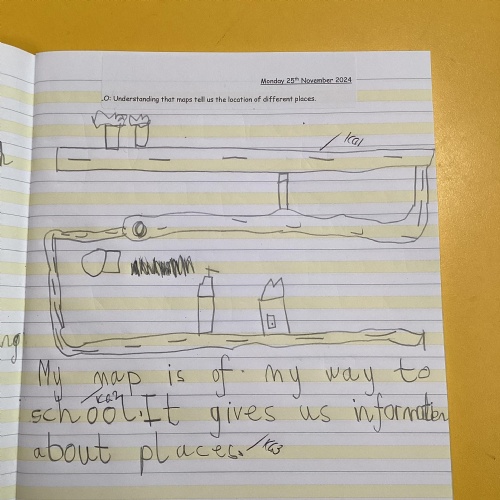 Monday 25th November 2024
.O: Understanding that maps tell us the location of different places.
KG1
My map is of my way to
KG2
school. It gives us information
about places. KG3